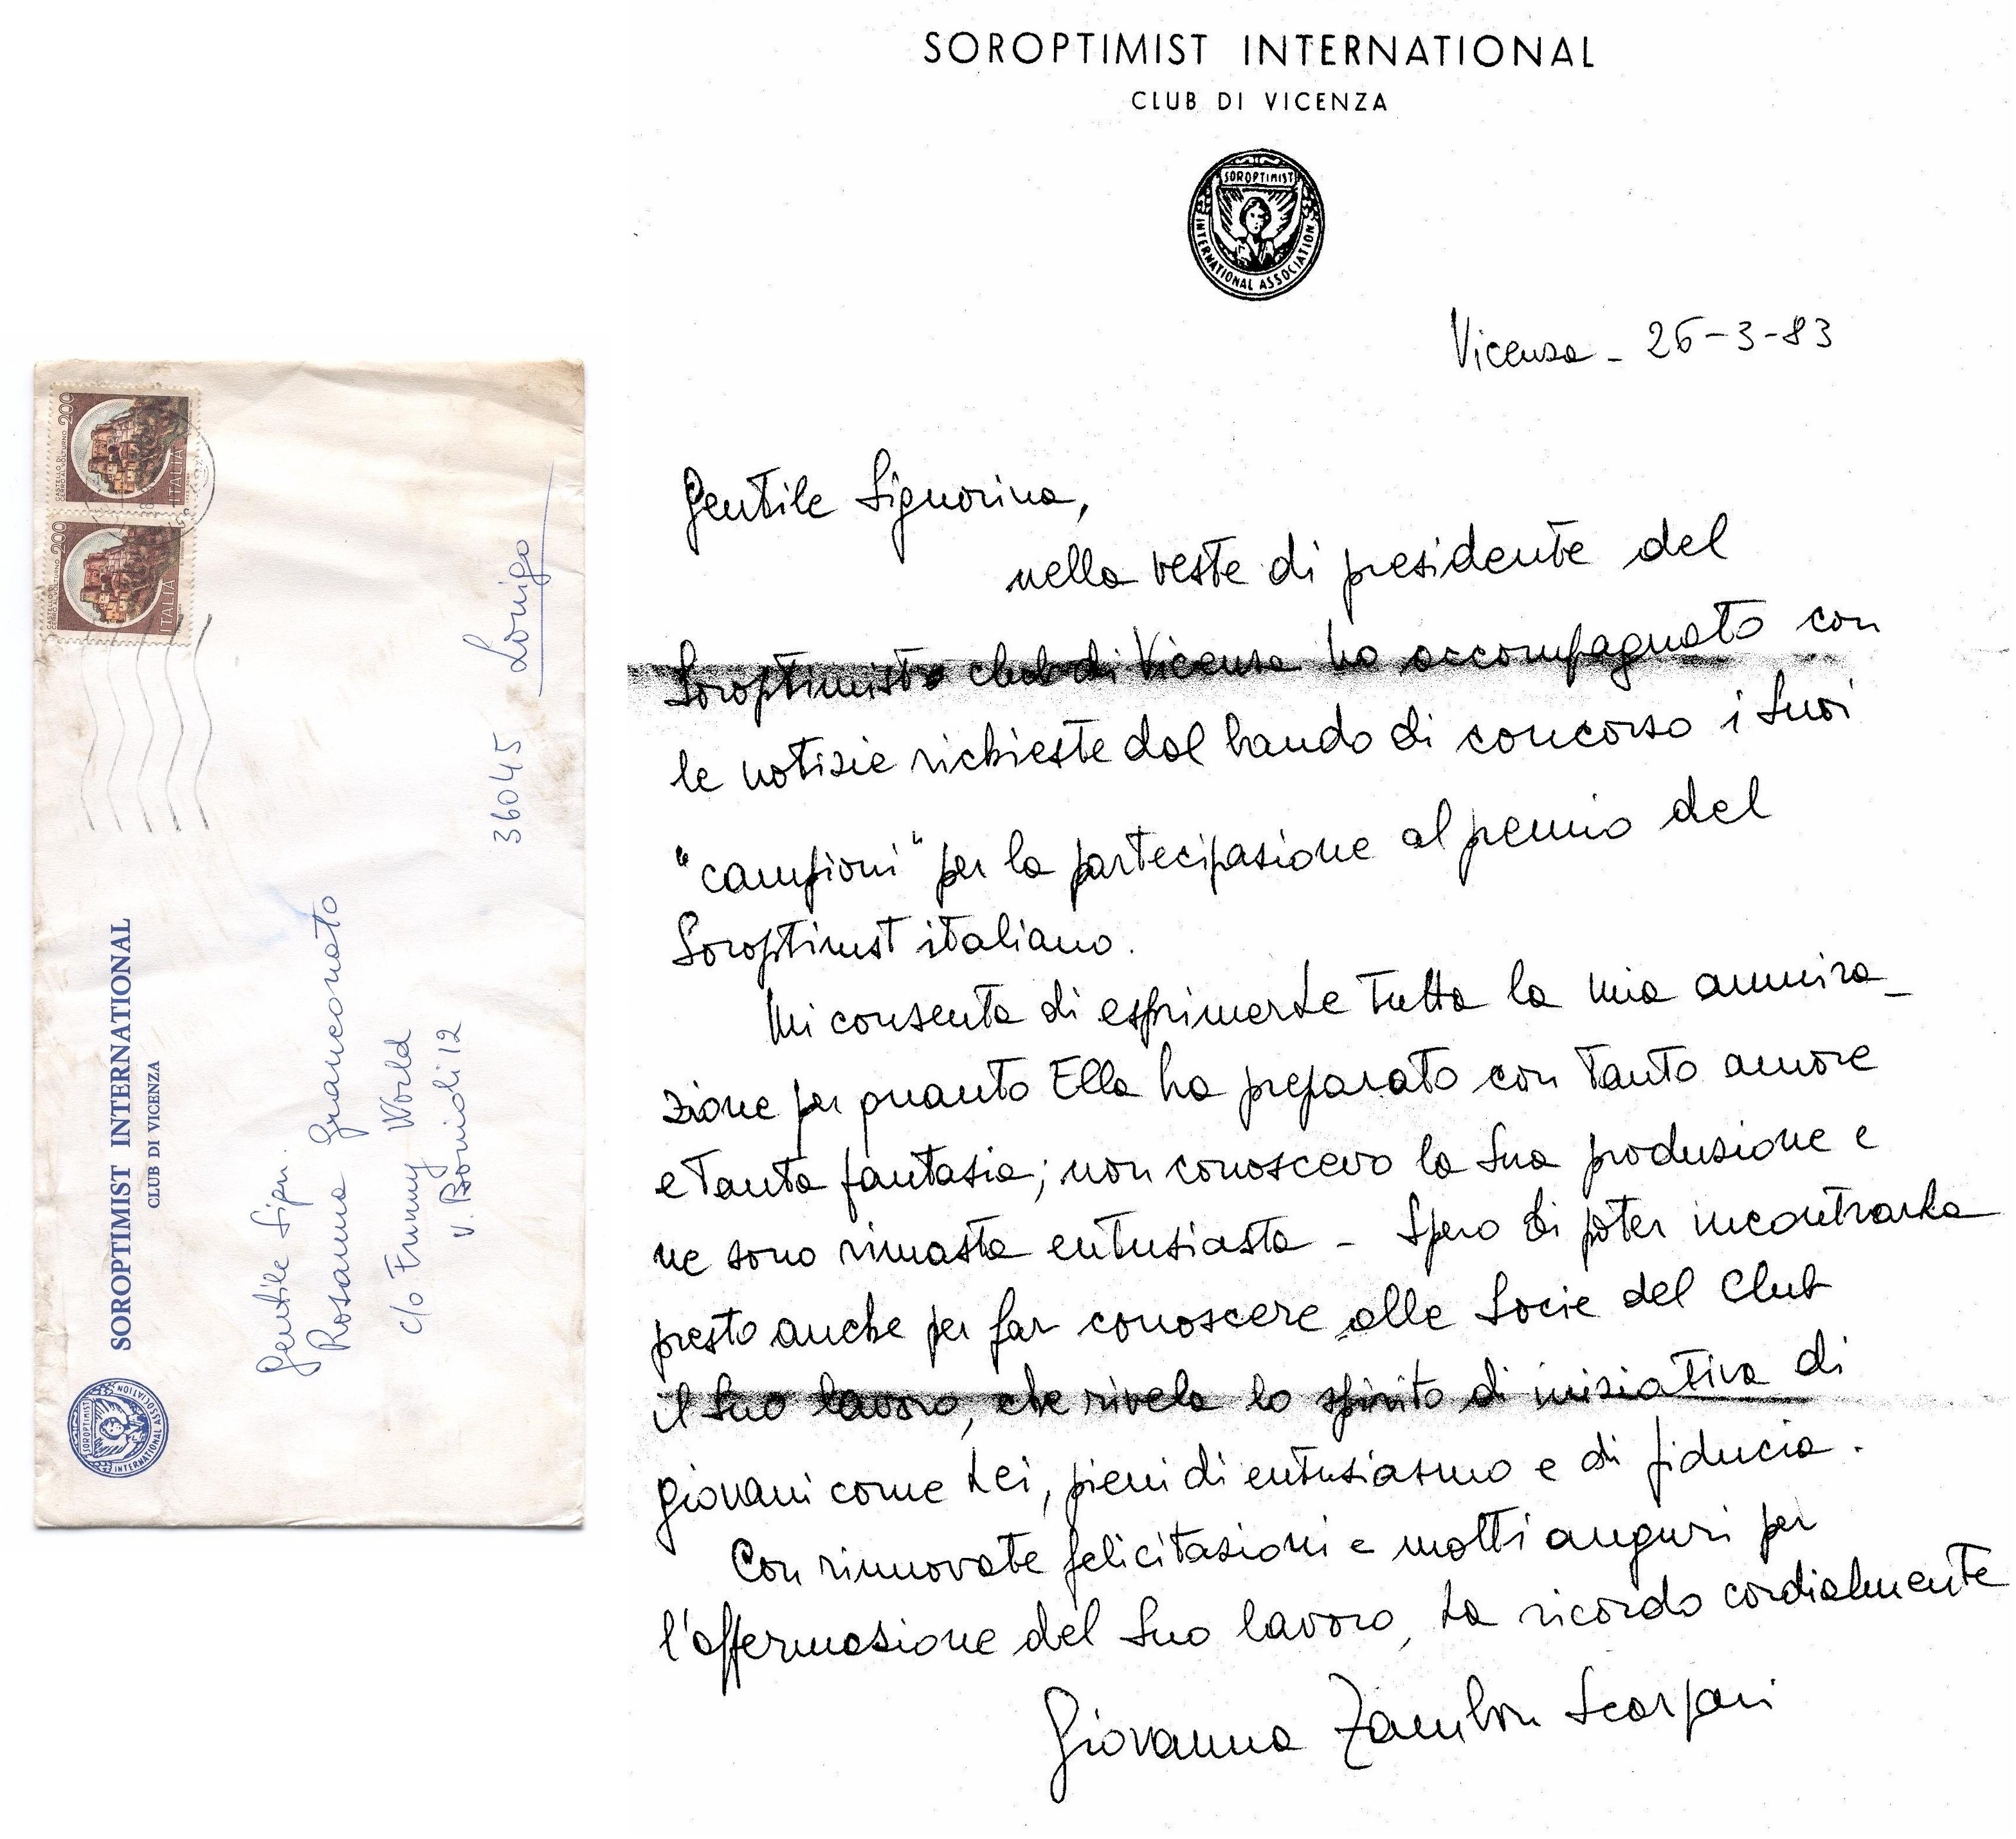 SOROPTIMIST INTERNATIONAL
CLUB DI VICENZA
SOROPTIMIST
INTERNATIONAL ASSOCIATION
Vicenza - 26-3-83
Gentile Signorina,
nella veste di presidente del
Soroptimist club di Vicenza ho accompagnato con
le notizie richieste dal bando di concorso i Suoi
"campioni" per la partecipazione al premio del
Soroptimst italiano.
Mi consenta di esprimerLe tutta la mia ammira_
zione per quanto Ella ha preparato con tanto amore
e tanta fantasia; non conoscevo la Sua produzione e
ne sono rimasta entusiasta - Spero di poter incontrarLa
presto anche per far conoscere alle Socie del Club
il Suo lavoro, che rivela lo spirito di iniziativa di
giovani come Lei, pieni di entusiasmo e di fiducia.
Con rinnovate felicitazioni e molti auguri per
l'affermazione del Suo lavoro, La ricordo cordialmente
Giovanna Zambon Scarpari
CASTELLO DI
CERRO AL VOLTURNO 200
ITALIA
CASTELLO DI
CERRO AL VOLTURNO 200
ITALIA
SOROPTIMIST
INTERNATIONAL ASSOCIATION
SOROPTIMIST INTERNATIONAL
CLUB DI VICENZA
Gentile Sign.
Rosanna Granconato
c/o Funny World
v. Bonioli 12
36045 Lonigo